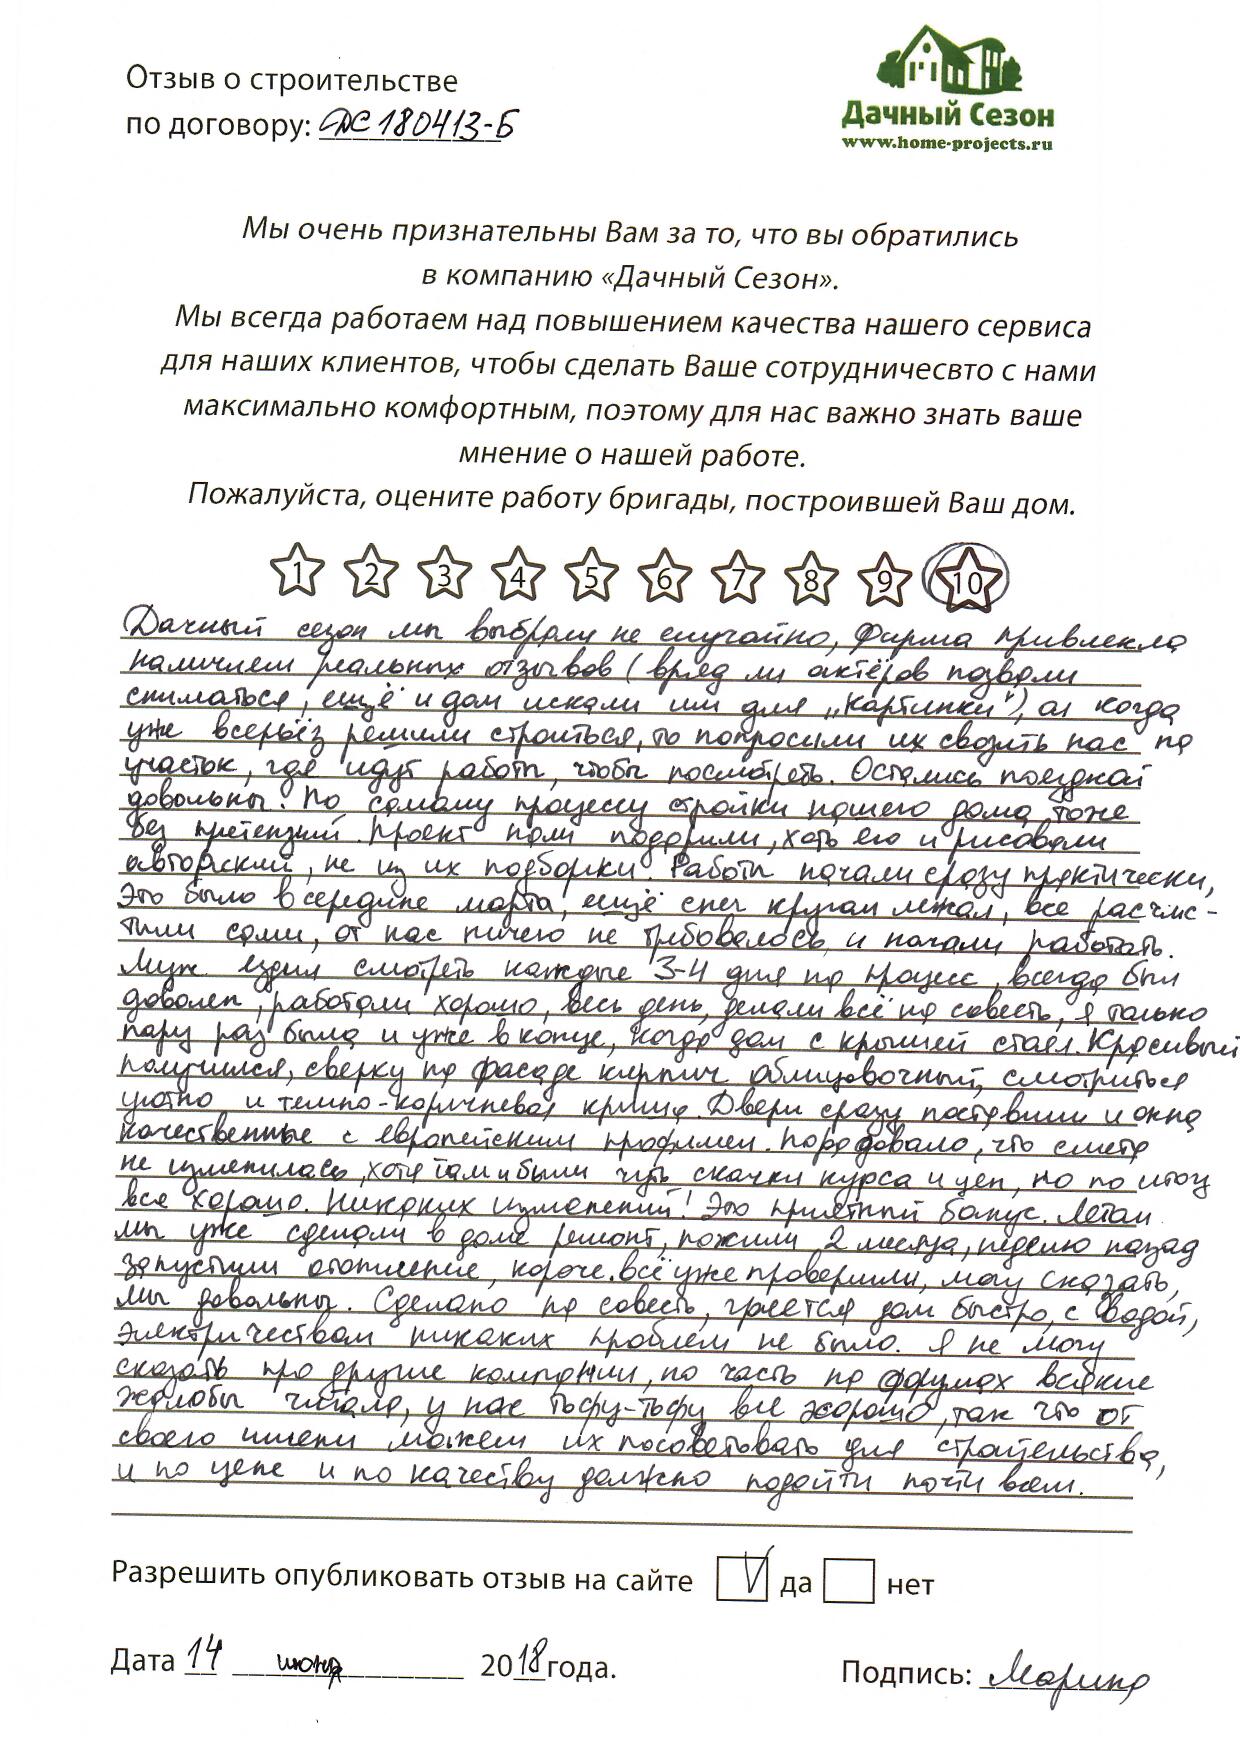 Отзыв о строительстве
по договору: ДС180413-Б
Дачный Сезон
www.home-projects.ru
Мы очень признательны Вам за то, что вы обратились
в компанию «Дачный Сезон».
Мы всегда работаем над повышением качества нашего сервиса
для наших клиентов, чтобы сделать Ваше сотрудничесвто с нами
максимально комфортным, поэтому для нас важно знать ваше
мнение о нашей работе.
Пожалуйста, оцените работу бригады, построившей Ваш дом.
1 2 3 4 5 6 7 8 9 10
Дачный сезон мы выбрали не случайно, Фирма привлекла
наличием реальных отзывов (вряд ли актёров позвали
сниматься, ещё и дом искали им для „картинки"), а когда
уже всерьёз решили строиться, то попросили их свозить нас на
участок, где идут работы, чтобы посмотреть. Остались поездкой
довольны. По самому процессу стройки нашего дома тоже
без претензий. Проект нам подарили, хоть его и рисовали
авторский, не из их подборки. Работы начали сразу практически,
Это было в середине марта, ещё снег кругом лежал, все расчис-
тили сами, от нас ничего не требовалось, и начали работать.
Муж ездил смотреть каждые 3-4 дня на процесс, всегда был
доволен, работали хорошо, весь день, делали всё на совесть, я только
пару раз была и уже в конце, когда дом с крышей стоял. Красивый
получился, сверху на фасаде кирпич облицовочный, смотриться
уютно и темно-коричневая крыша. Двери сразу поставили и окна
качественные с европейским профилем. Порадовало, что смета
не изменилась, хотя там и были чуть скачки курса и цен, но по итогу
все хорошо. Никаких изменений! Это приятный бонус. Летом
мы уже сделали в доме ремонт, пожили 2 месяца, неделю назад
запустили отопление, короче, всё уже проверили, могу сказать,
мы довольны. Сделано на совесть, греется дом быстро, с водой,
электричеством никаких проблем не было. Я не могу
сказать про другие компании, но часть на форумах всякие
жалобы читала, у нас тьфу-тьфу все хорошо, так что от
своего имени можем их посоветовать для строительства,
и по цене и по качеству должно подойти почти всем.
Разрешить опубликовать отзыв на сайте V да нет
Дата 14 июня 2018года. Подпись: Марина